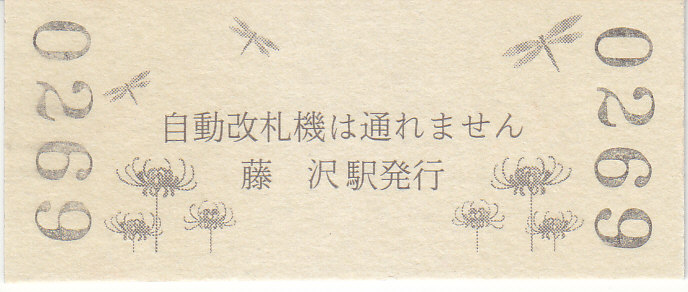 0269
自動改札機は通れません
藤 沢駅発行
0269